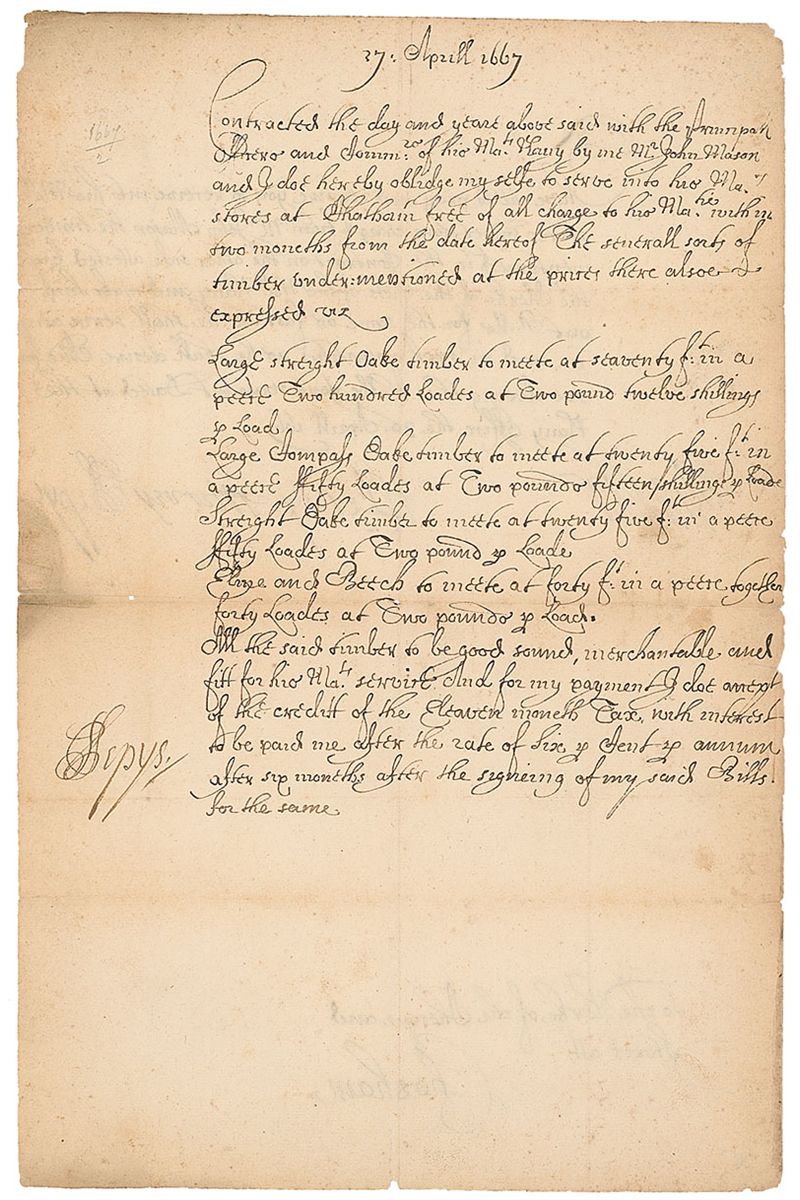 27: Aprill 1667
1667
2
Contracted the day and yeare above said with the Principall
Officers and Commrs. of his Mats. Navy by me Mr. John Mason
and I doe hereby oblidge my selfe to serve into his Mats.
stores at Chatham free of all charge to his Matie. with in
two moneths from the date hereof The severall sorts of
timber under:mentioned at the prices there alsoe
expressed viz
Large streight Oake timber to meete at seaventy f:t in a
peece Two hundred Loades at Two pound twelve shillings
p Load
Large Compass Oake timber to meete at twenty five f:t in
a peece ffifty Loades at Two pounds fifteen shillings p Loade
Streight Oake timber to meete at twenty five f:t in a peece
ffifty Loades at Two pound p Loade
Elme and Beech to meete at forty f:t in a peece together
forty Loades at Two pounds p Load.
All the said timber to be good sound, merchantable and
fitt for his Mats. service. And for my payment I doe accept
of the creditt of the Eleaven moneth Tax, with interest
to be paid me after the rate of six p Cent p annum
after six months after the signing of my said Bills
for the same
SPepys.